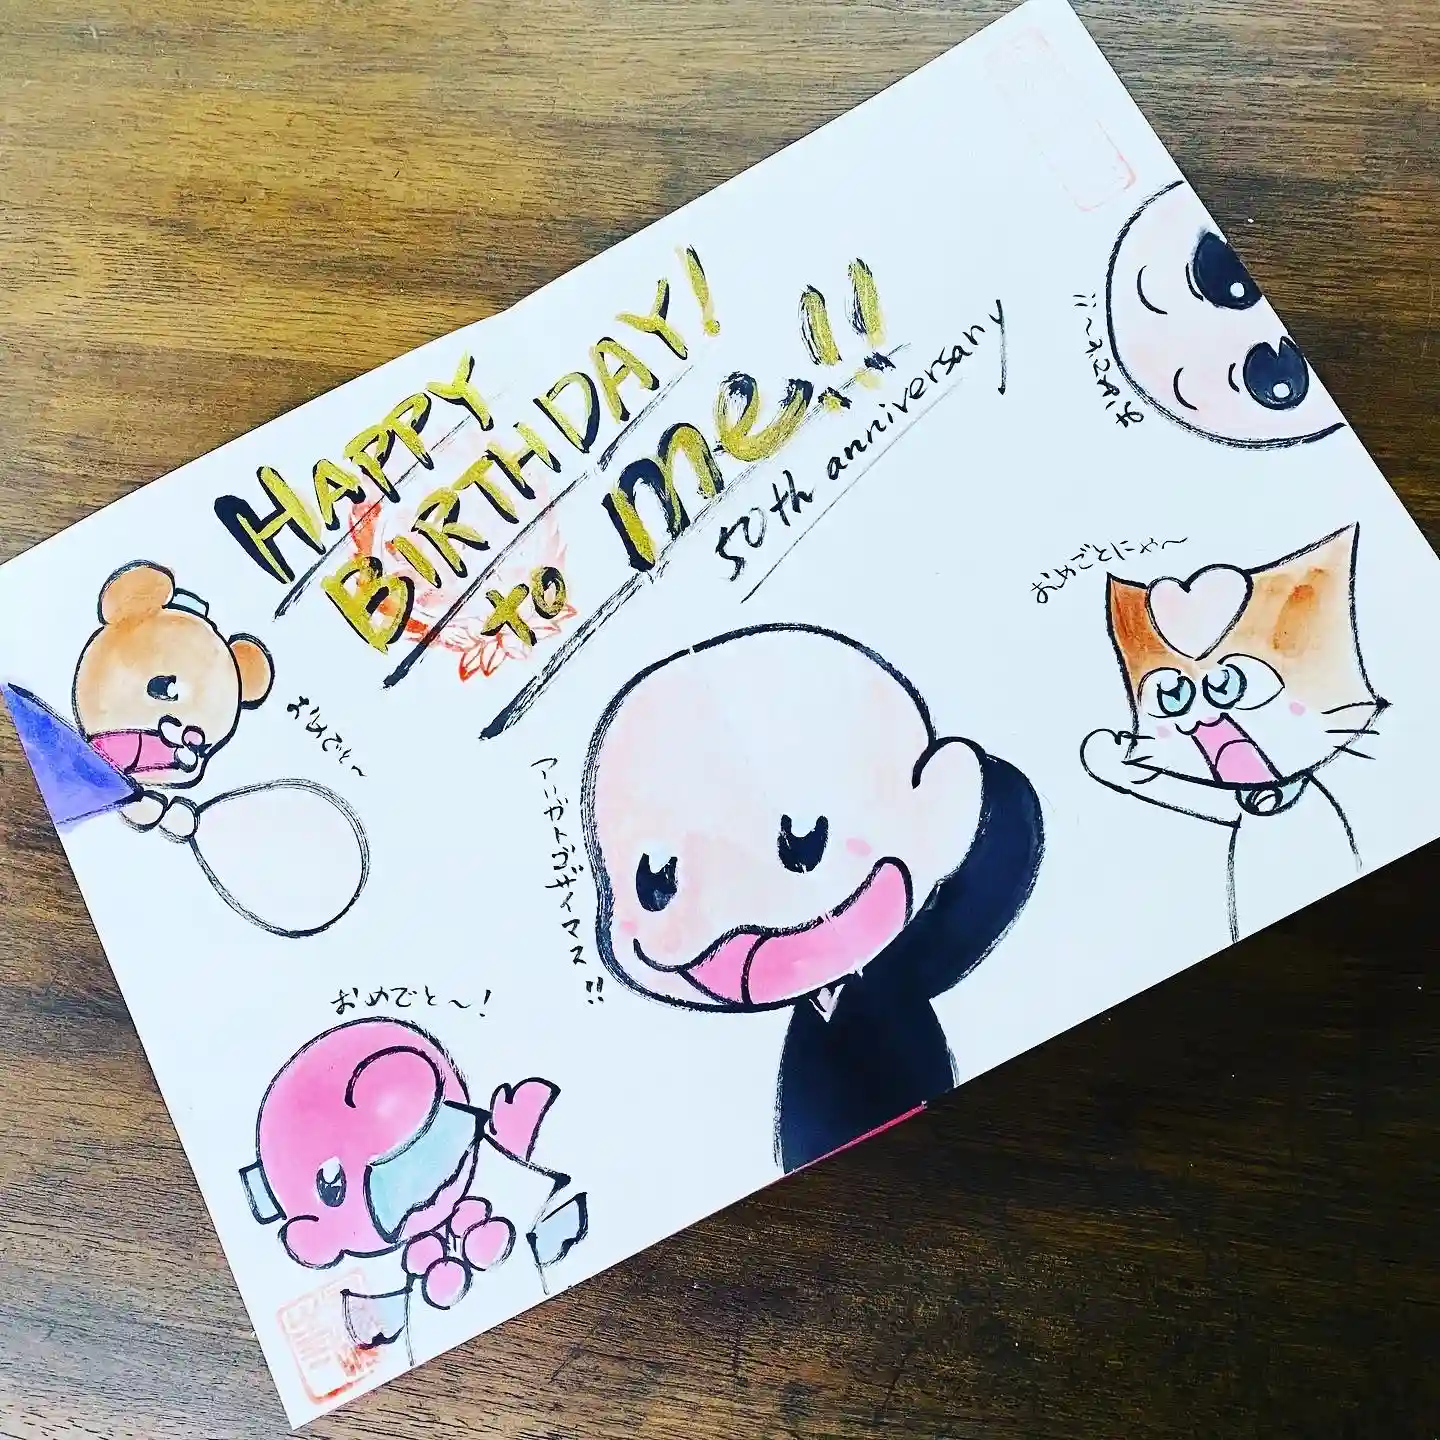 HAPPY
BIRTHDAY!
to me!!
50th anniversary
おめでと〜
おめでと〜!
アリガトゴザイマス!!
おめごとにゃ〜